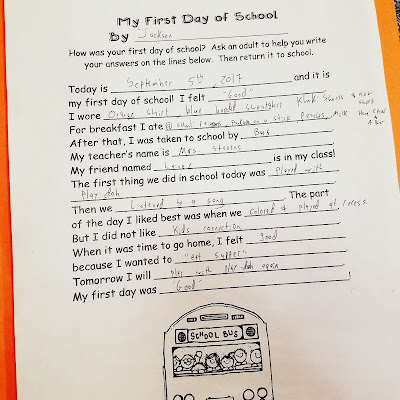 My First Day of School
By Jackson
How was your first day of school? Ask an adult to help you write
your answers on the lines below. Then return it to school.
Today is September 5th, 2017 and it is
my first day of school! I felt "Good"
I wore Orange shirt blue hooded sweatshirt Khaki shorts & new
For breakfast I ate on a stick Peaches, Milk
After that, I was taken to school by Bus
My teacher's name is Mrs. Stevens
My friend named is in my class!
The first thing we did in school today was Played with
Play doh
Then we Listened to a song The part
of the day I liked best was when we colored & Played at recess.
But I did not like Kids connection
When it was time to go home, I felt Good
because I wanted to "eat supper"
Tomorrow I will play with Play-doh again
My first day was "Good" !
SCHOOL BUS